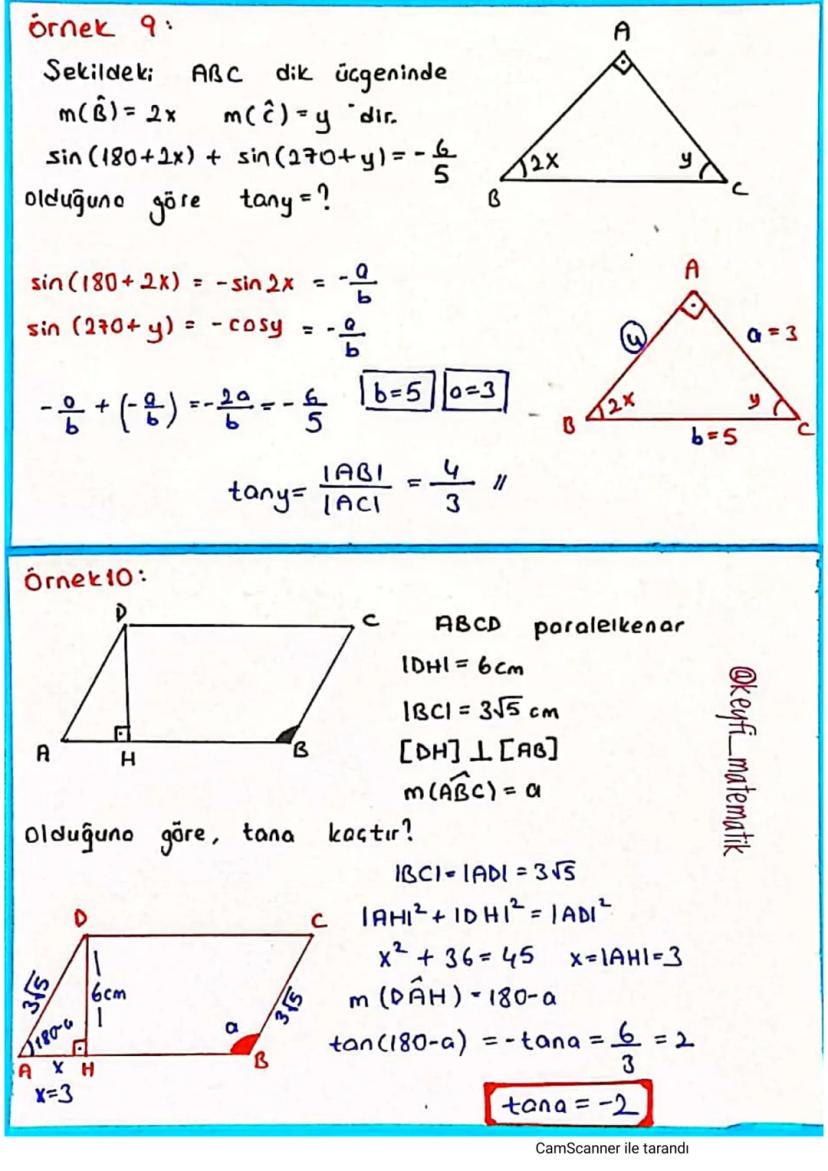 örnek 9:
Şekildeki ABC dik üçgeninde
m(B̂) = 2x m(ĉ) = y 'dir.
sin(180+2x) + sin(270+y) = -6/5
olduğuna göre tany = ?
A
B
2x
y
C
sin(180+2x) = -sin2x = -a/b
sin (270+y) = -cosy = -a/b
-a/b + (-a/b) = -2a/b = -6/5 b=5 a=3
tany = |AB|/|AC| = 4/3 //
A
4
a = 3
B
2x
y
C
b = 5
Örnek 10:
D
C
A
H
B
ABCD paralelkenar
|DH| = 6cm
|BC| = 3√5 cm
[DH] ⊥ [AB]
m(ABC) = a
olduğuna göre, tana kaçtır?
@keyfi_matematik
|BC| = |AD| = 3√5
|AH|² + |DH|² = |AD|²
x² + 36 = 45 x=|AH|=3
m (DÂH) = 180-a
tan(180-a) = -tana = 6/3 = 2
tana = -2
D
C
3√5
6cm
3√5
180-a
a
A
x
H
B
x=3
CamScanner ile tarandı